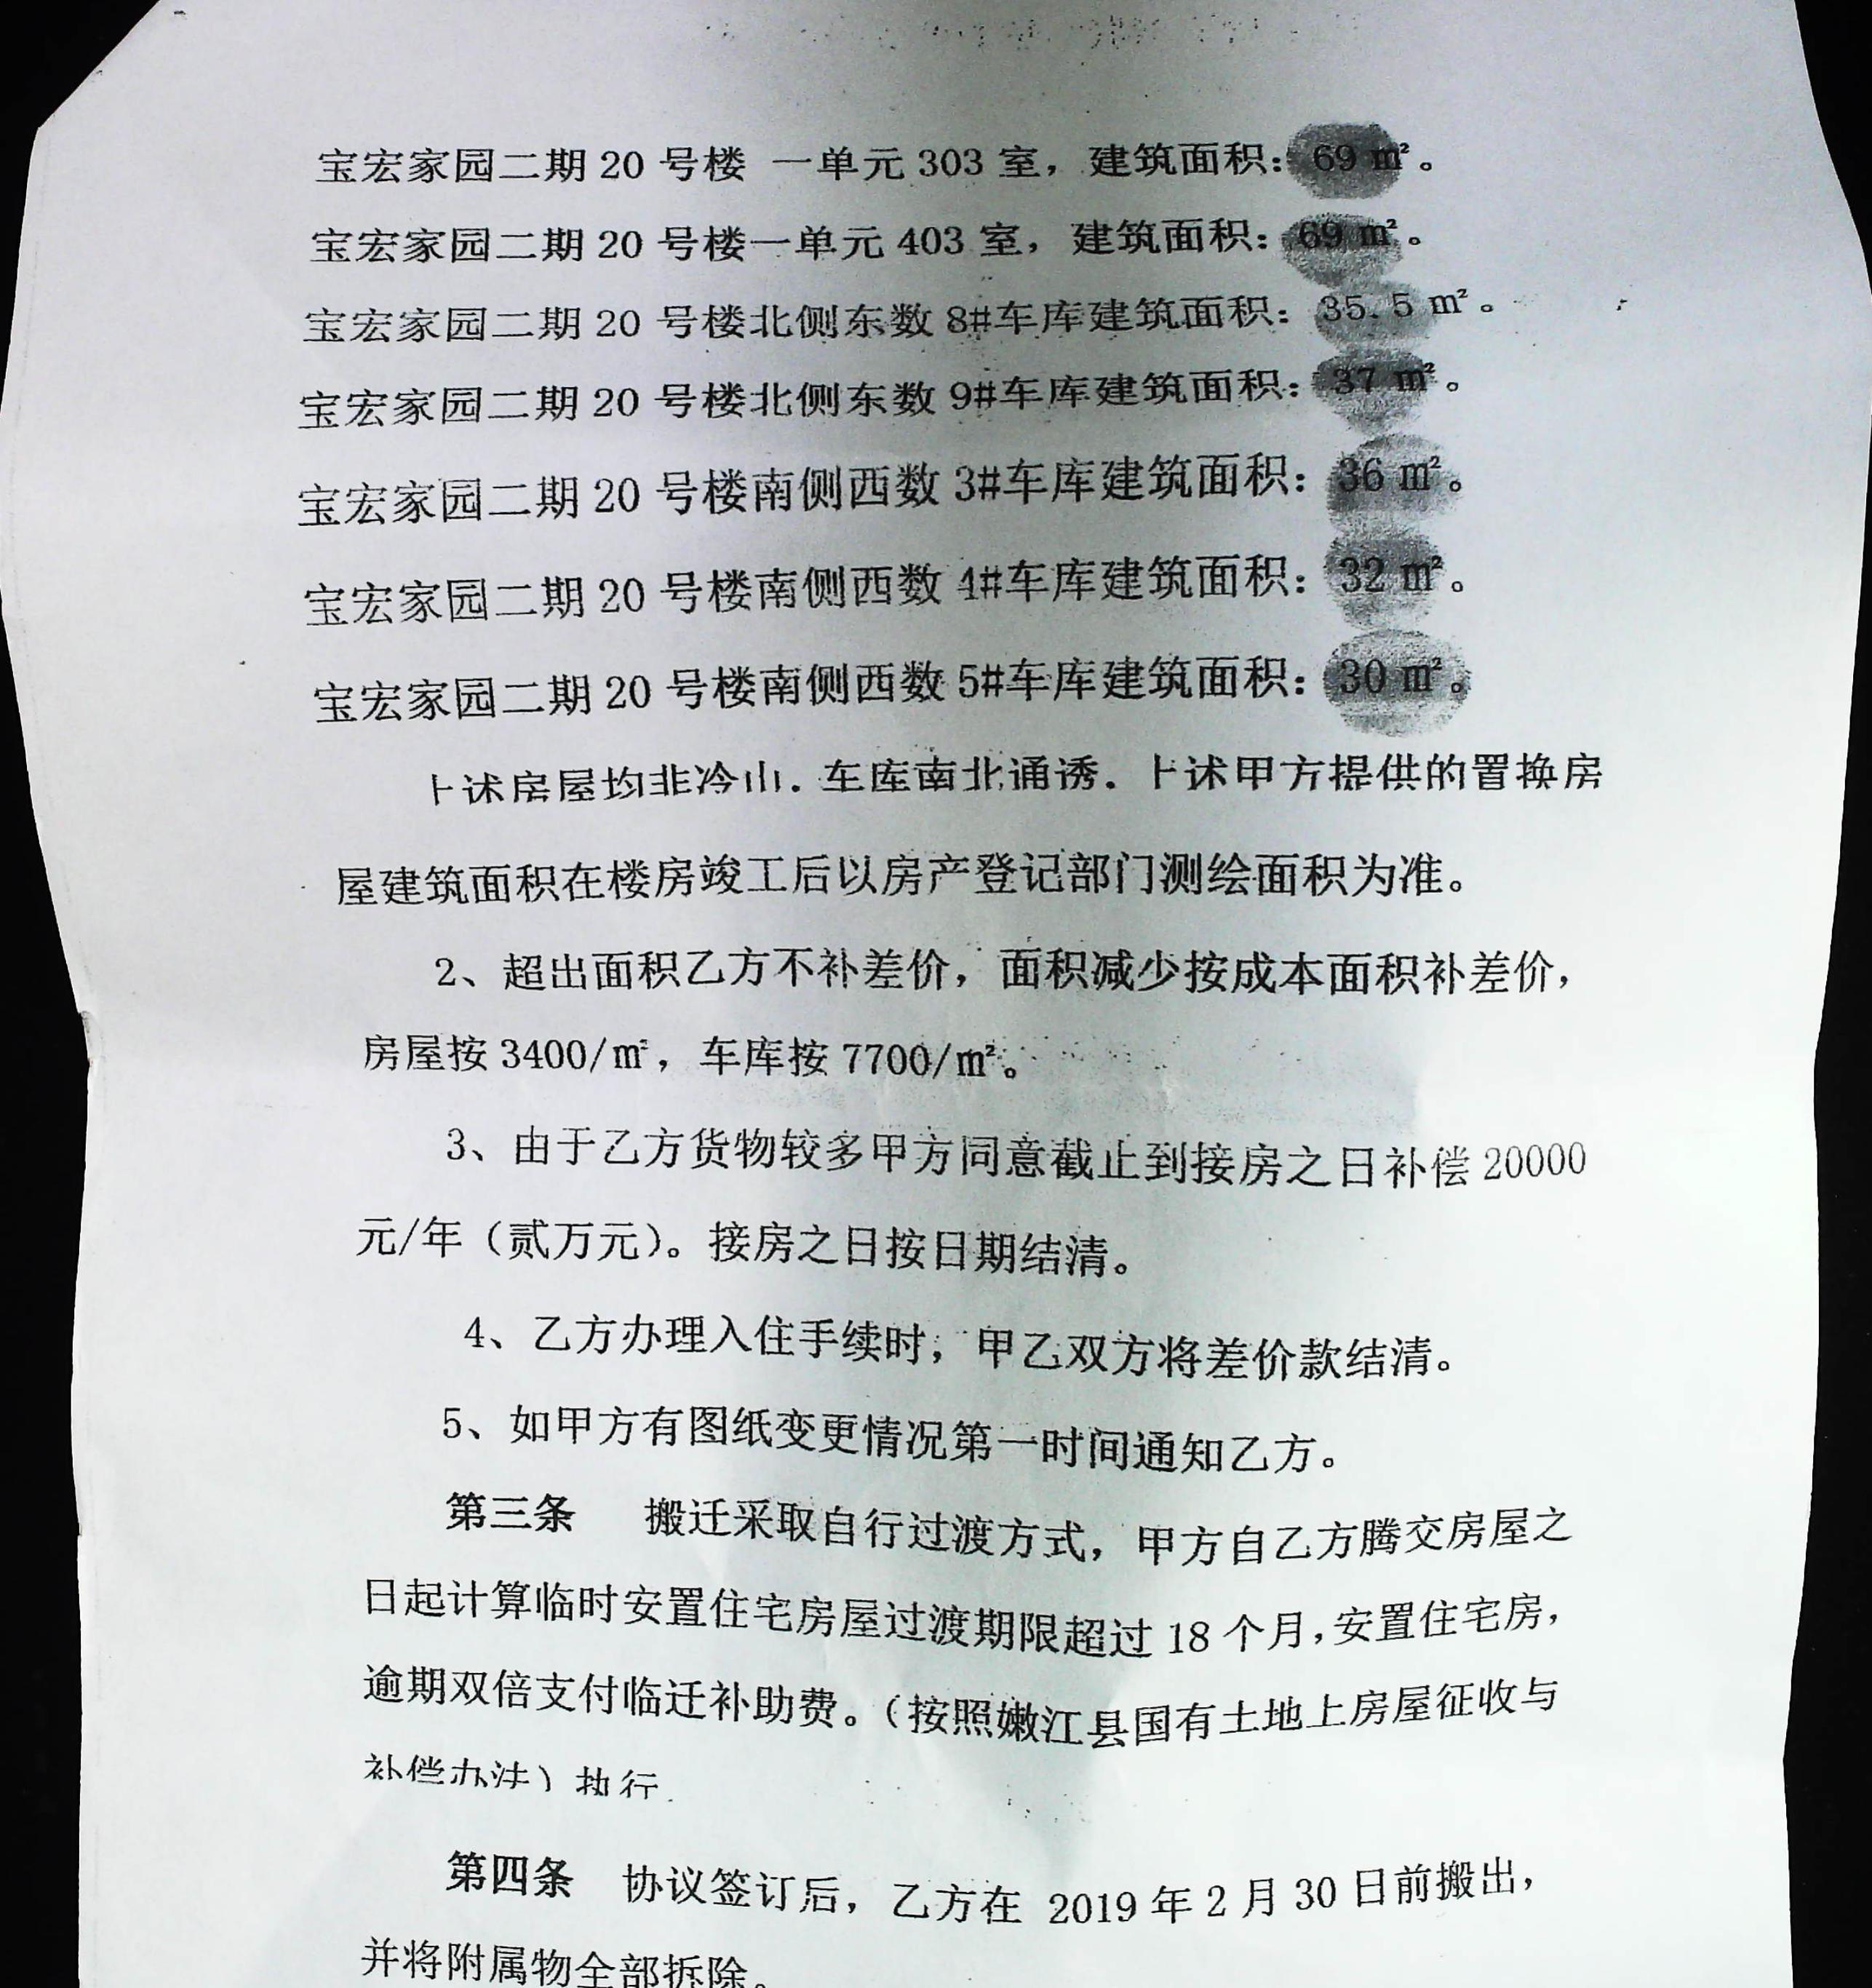 宝宏家园二期 20 号楼 一单元 303 室，建筑面积：69 ㎡。
宝宏家园二期 20 号楼一单元 403 室，建筑面积：69 ㎡。
宝宏家园二期 20 号楼北侧东数 8#车库建筑面积：35.5 ㎡。
宝宏家园二期 20 号楼北侧东数 9#车库建筑面积：37 ㎡。
宝宏家园二期 20 号楼南侧西数 3#车库建筑面积：36 ㎡。
宝宏家园二期 20 号楼南侧西数 4#车库建筑面积：32 ㎡。
宝宏家园二期 20 号楼南侧西数 5#车库建筑面积：30 ㎡。
上述房屋均非冷山，车库南北通透。上述甲方提供的置换房
屋建筑面积在楼房竣工后以房产登记部门测绘面积为准。
2、超出面积乙方不补差价，面积减少按成本面积补差价，
房屋按 3400/㎡，车库按 7700/㎡。
3、由于乙方货物较多甲方同意截止到接房之日补偿 20000
元/年（贰万元）。接房之日按日期结清。
4、乙方办理入住手续时，甲乙双方将差价款结清。
5、如甲方有图纸变更情况第一时间通知乙方。
第三条 搬迁采取自行过渡方式，甲方自乙方腾交房屋之
日起计算临时安置住宅房屋过渡期限超过 18 个月，安置住宅房，
逾期双倍支付临迁补助费。（按照嫩江县国有土地上房屋征收与
补偿办法）执行.
第四条 协议签订后，乙方在 2019 年 2 月 30 日前搬出，
并将附属物全部拆除。